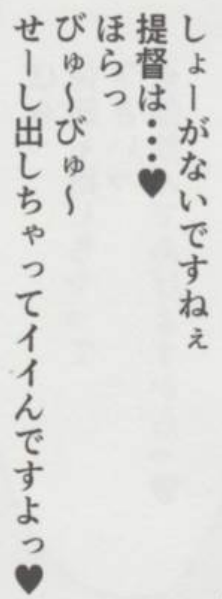 しょーがないですねぇ
提督は…♥
ほらっ
びゅ〜びゅ〜
せーし出しちゃってイイんですよっ♥